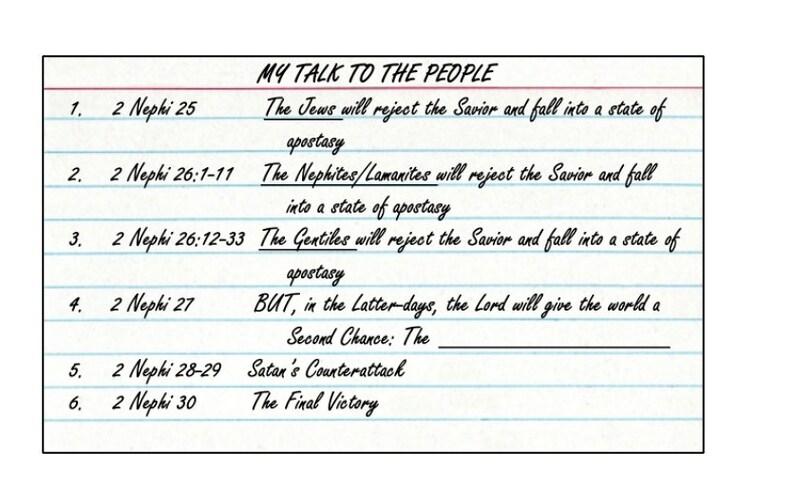 MY TALK TO THE PEOPLE
1. 2 Nephi 25 The Jews will reject the Savior and fall into a state of
apostasy
2. 2 Nephi 26:1-11 The Nephites/Lamanites will reject the Savior and fall
into a state of apostasy
3. 2 Nephi 26:12-33 The Gentiles will reject the Savior and fall into a state of
apostasy
4. 2 Nephi 27 BUT, in the Latter-days, the Lord will give the world a
Second Chance: The ____________________
5. 2 Nephi 28-29 Satan's Counterattack
6. 2 Nephi 30 The Final Victory